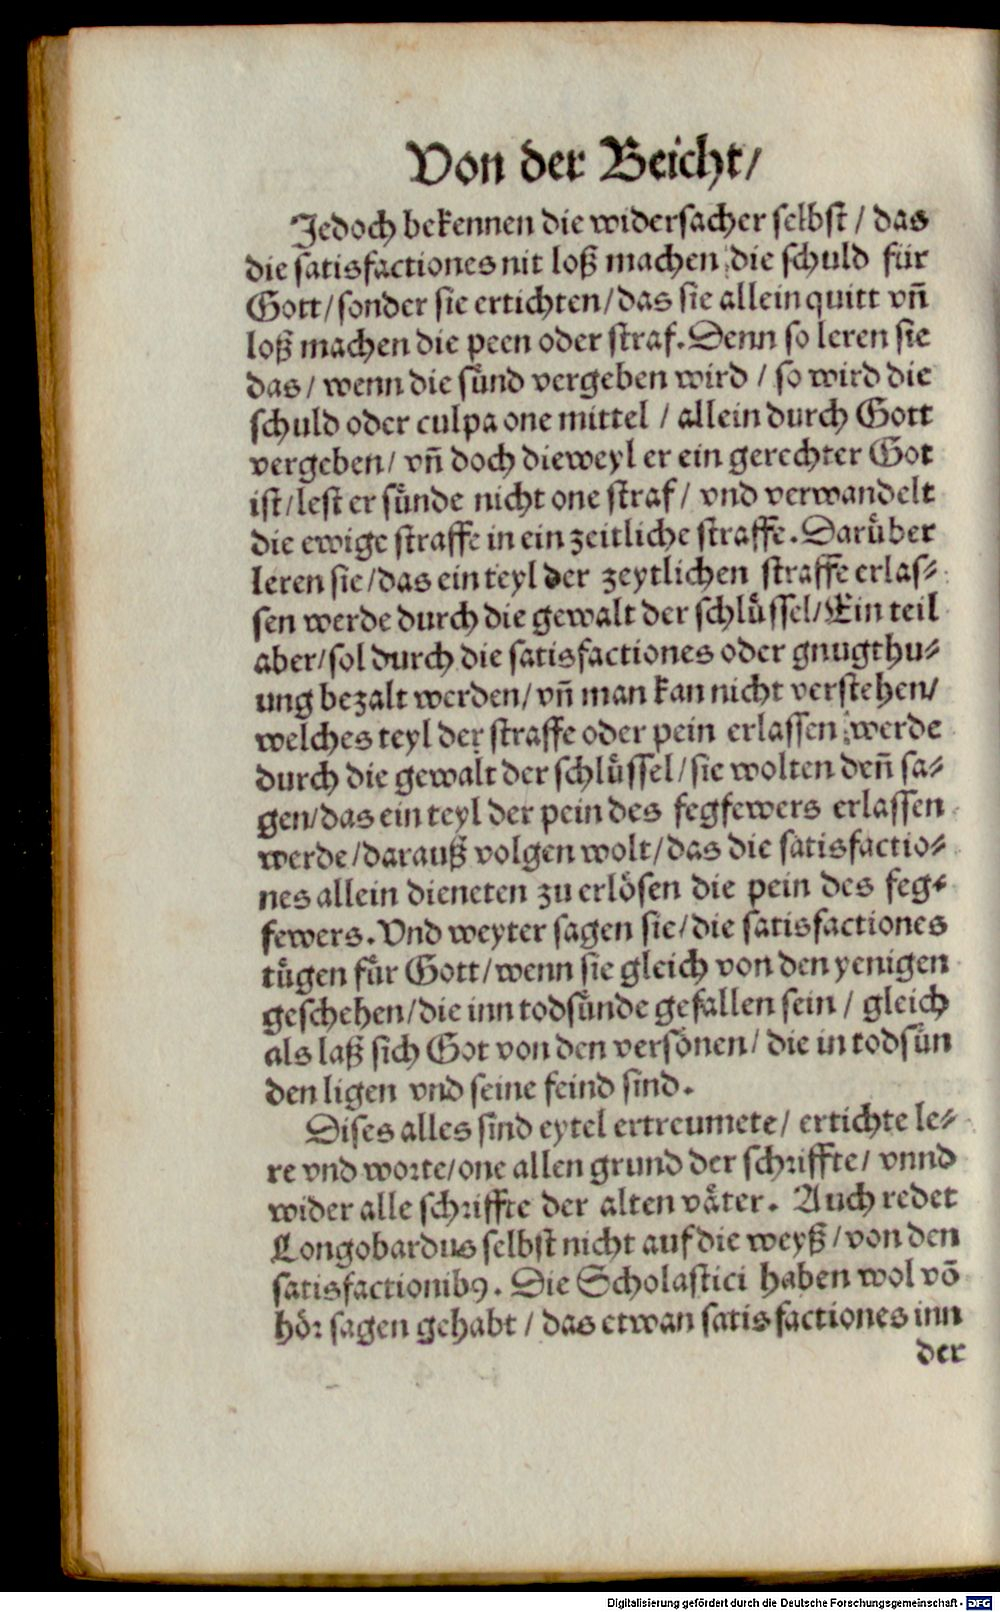 Von der Beicht/
Jedoch bekennen die widersacher selbst / das
die satisfactiones nit loß machen die schuld für
Gott/sonder sie ertichten/das sie allein quitt vn̄
loß machen die peen oder straf. Denn so leren sie
das/ wenn die sünd vergeben wird / so wird die
schuld oder culpa one mittel / allein durch Gott
vergeben/ vn̄ doch dieweyl er ein gerechter Got
ist/lest er sünde nicht one straf/ vnd verwandelt
die ewige straffe in ein zeitliche straffe. Darüber
leren sie/das ein teyl der zeytlichen straffe erlas⸗
sen werde durch die gewalt der schlüssel/Ein teil
aber/sol durch die satisfactiones oder gnugthu⸗
ung bezalt werden/ vn̄ man kan nicht verstehen/
welches teyl der straffe oder pein erlassen werde
durch die gewalt der schlüssel/sie wolten den̄ sa⸗
gen/das ein teyl der pein des fegfewers erlassen
werde/darauß volgen wolt/das die satisfactio⸗
nes allein dieneten zu erlösen die pein des feg⸗
fewers. Vnd weyter sagen sie/die satisfactiones
tügen für Gott/wenn sie gleich von den yenigen
geschehen/die inn todsünde gefallen sein / gleich
als laß sich Got von den versönen/ die in todsün
den ligen vnd seine feind sind.
Dises alles sind eytel ertreumete/ ertichte le⸗
re vnd worte/one allen grund der schriffte/ vnnd
wider alle schriffte der alten väter. Auch redet
Longobardus selbst nicht auf die weyß/von den
satisfactionibꝰ. Die Scholastici haben wol vō
hör sagen gehabt / das etwan satisfactiones inn
der
Digitalisierung gefördert durch die Deutsche Forschungsgemeinschaft - DFG